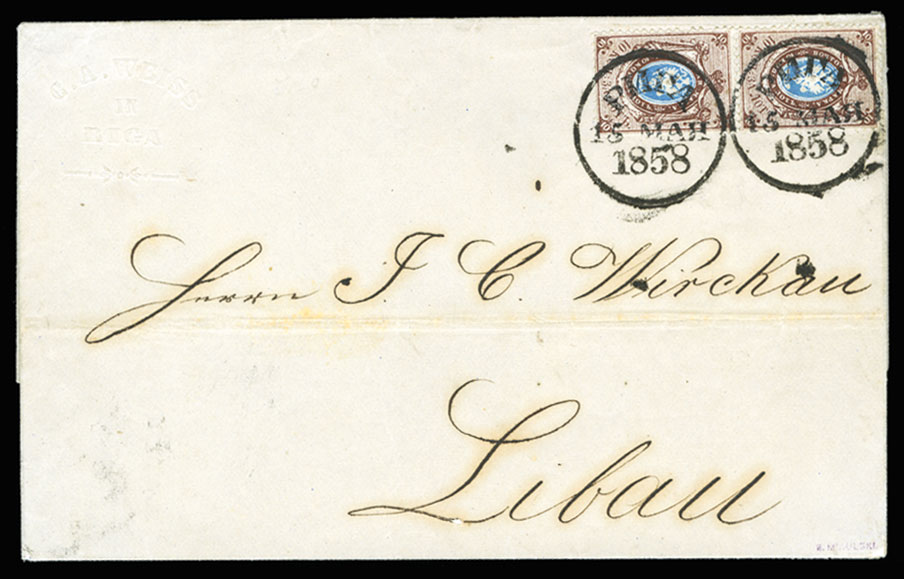 G. A. WEISS
IN
RIGA
РИГА
15 МАЯ
1858
РИГА
15 МАЯ
1858
Herrn J. C. Wirckau
Libau